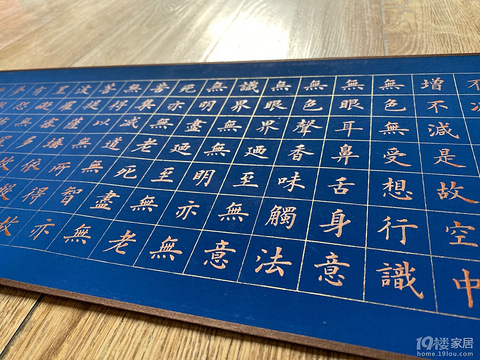 不
增不減是故空中
無色無受想行識
無眼耳鼻舌身意
無色聲香味觸法
無眼界廼至無意
識界無無明亦無
無明盡廼至無老
死亦無老死盡無
苦集滅道無智亦
無得以無所得故
菩提薩埵依
19楼家居
home.19lou.com